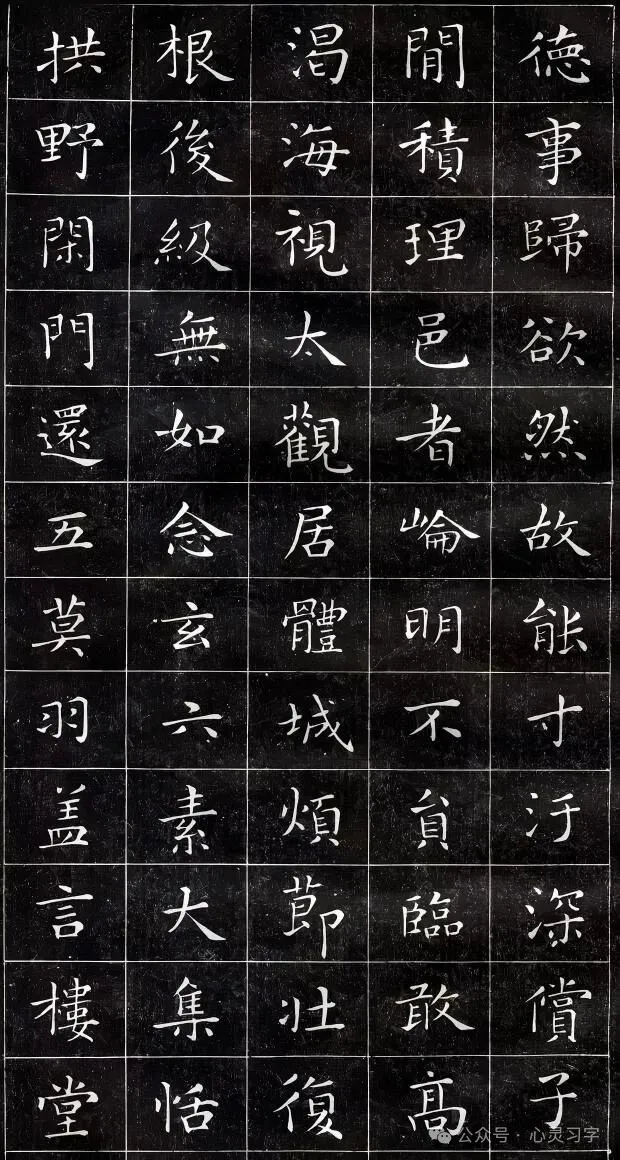 德事歸欲然故能寸汙深償子
閒積理邑者崘明不貟臨敢髙
渴海視太觀居體城煩莭壯復
根後級無如念玄六素大集恬
拱野閑門還五莫羽盖言樓堂
公众号 · 心灵习字